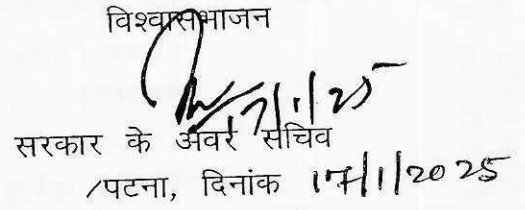 विश्वासभाजन
17/1/25
सरकार के अवर सचिव
/पटना, दिनांक 17/1/2025